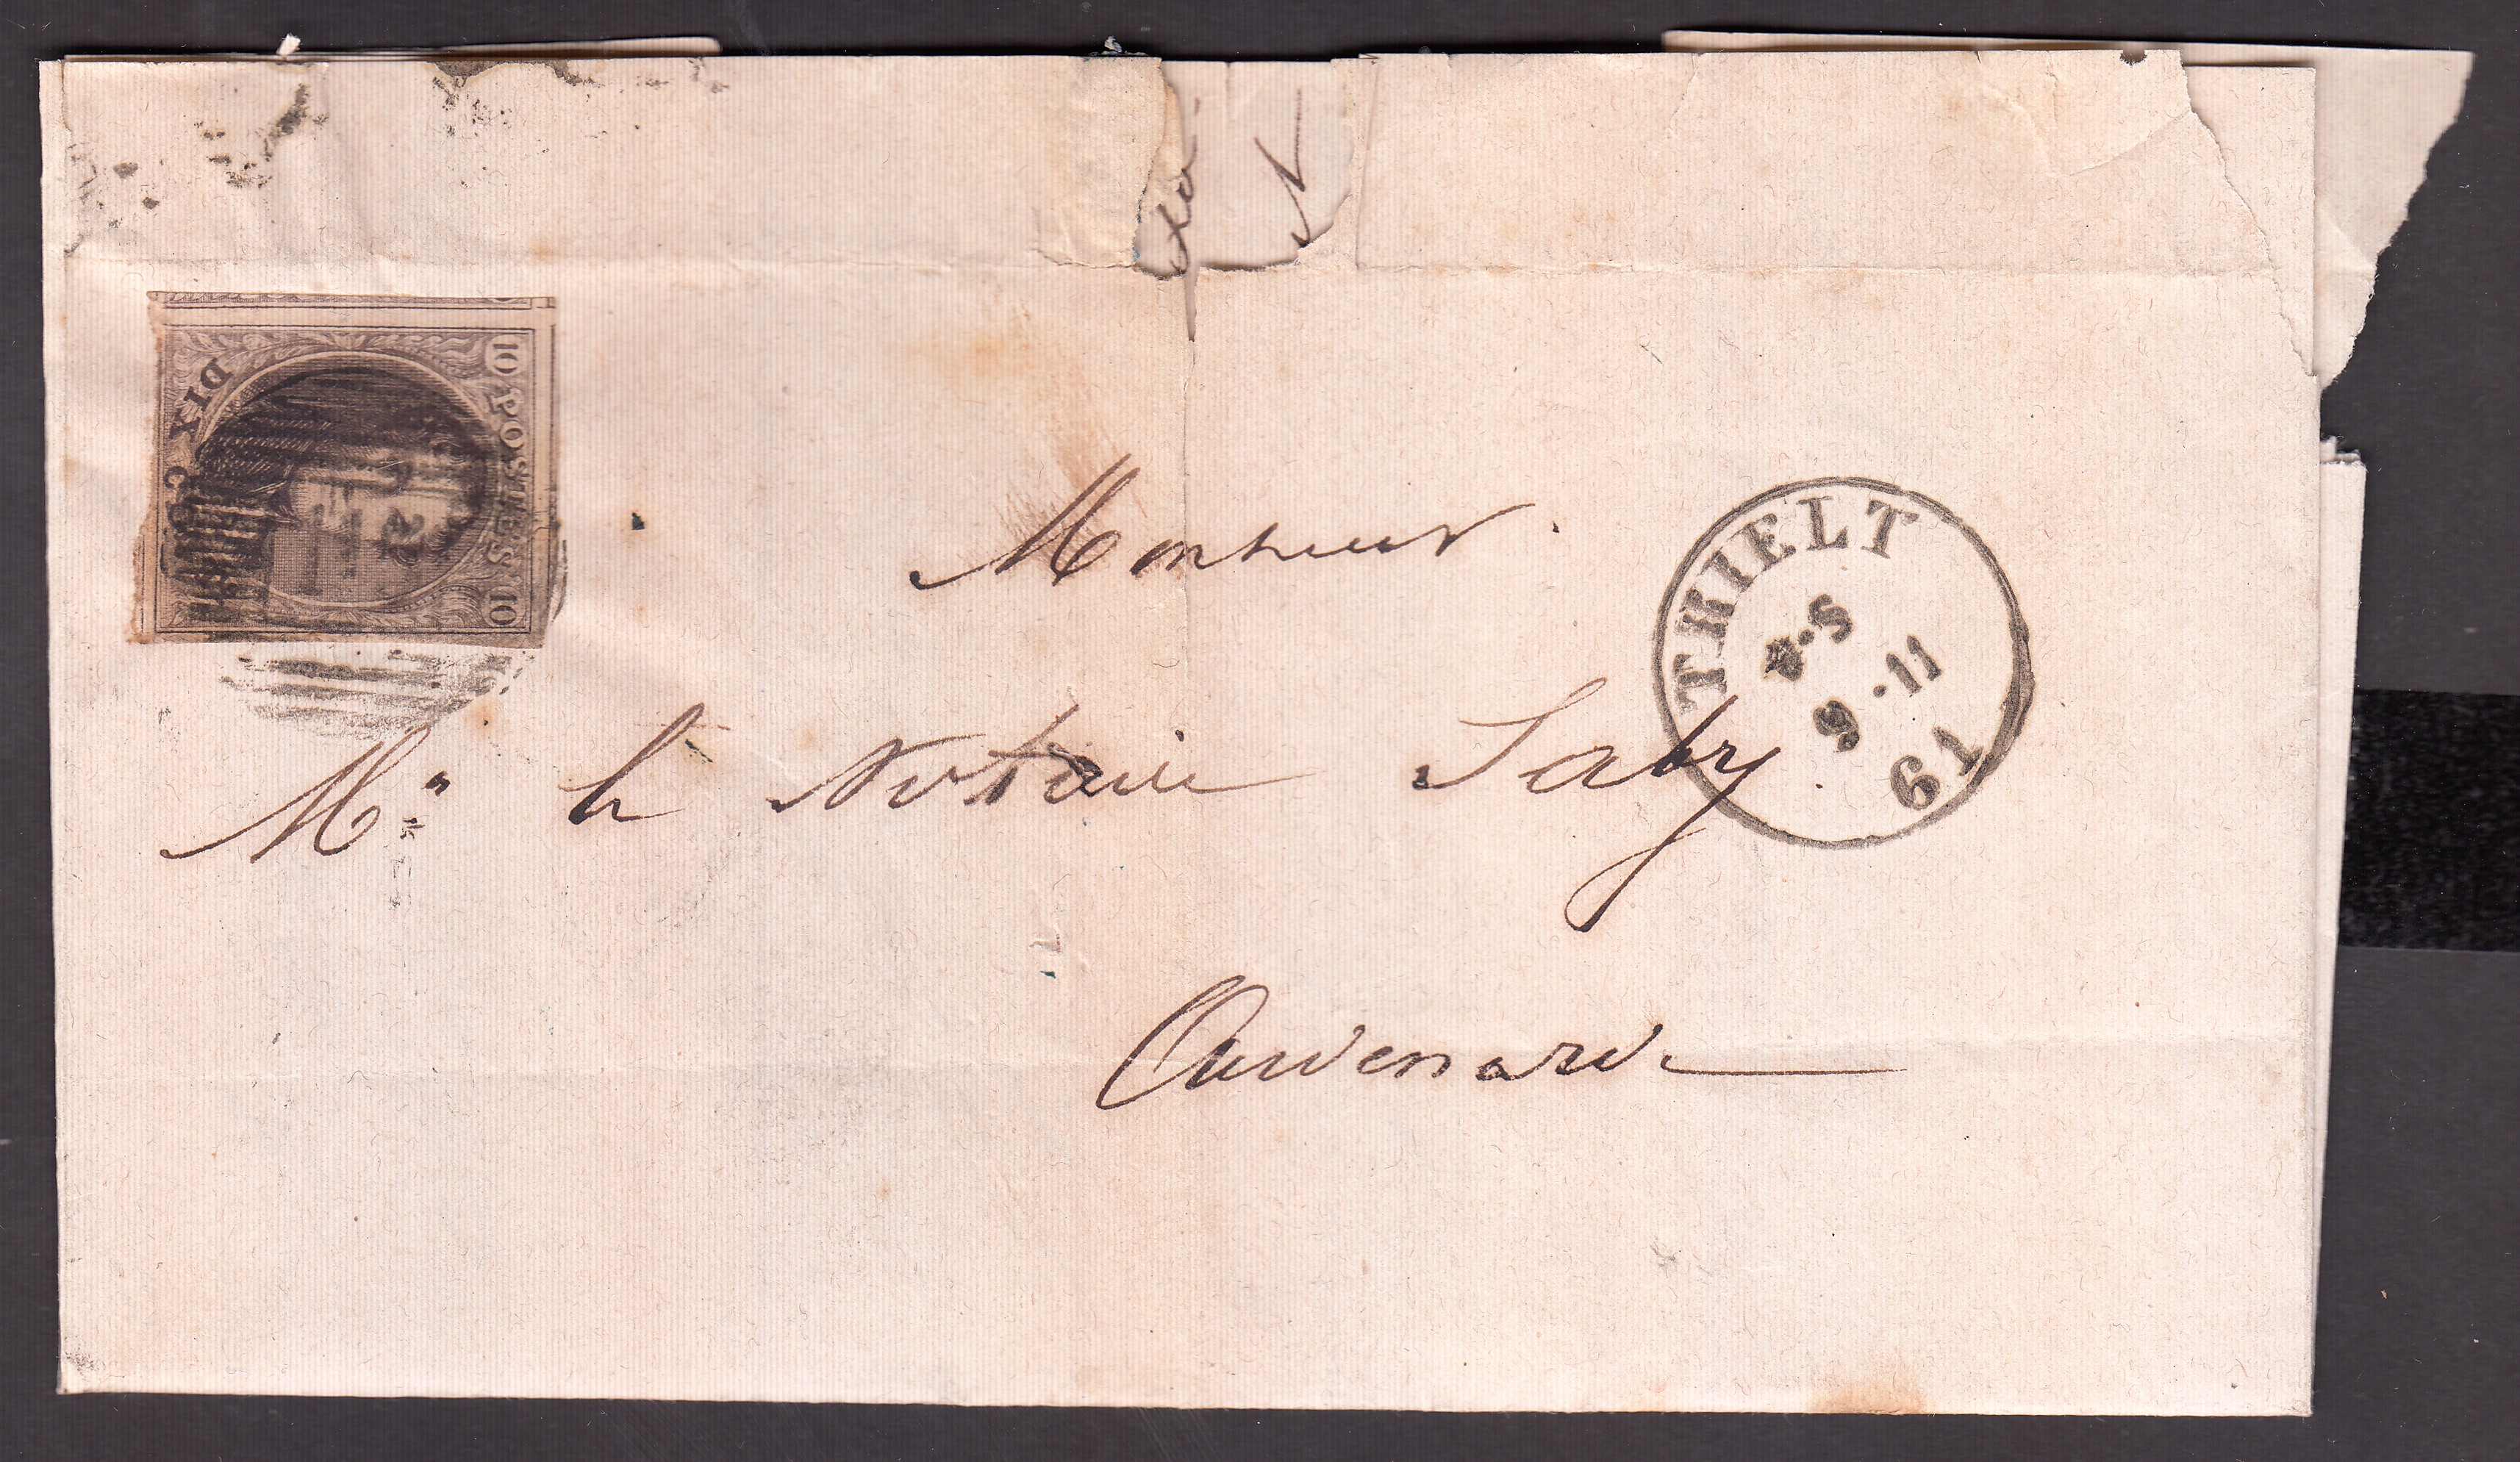 10 POSTES 10
DIX C
Monsieur
THIELT
4·S
9·11
61
Mr le Notaire Saby
Audenarde